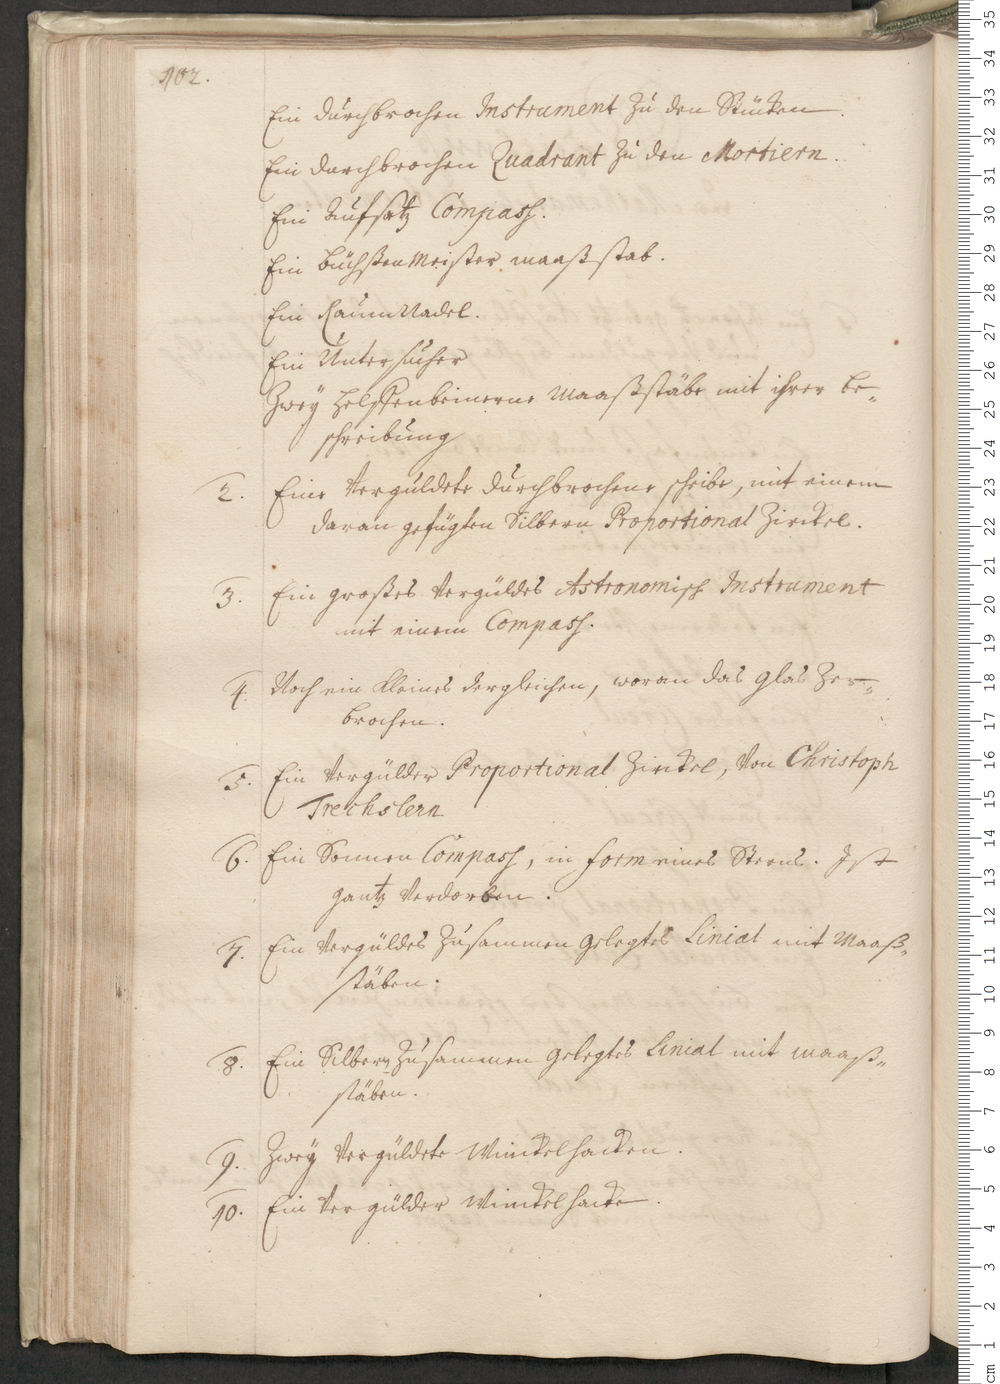 102.
Ein durchbrochen Instrument zu den Stücken.
Ein durchbrochen Quadrant zu den Mortiern.
Ein Aufsatz Compass.
Ein büchßenmeister maaßstab.
Ein RaumNadel.
Ein Untersucher
Zwey helffenbeinerne Maaßstäbe mit ihrer be-
schreibung
2. Eine Vergüldete durchbrochene scheibe, mit einem
daran gefügten Silbern Proportional Zirckel.
3. Ein großes Vergüldes Astronomisch Instrument
mit einem Compass.
4. Noch ein kleines dergleichen, woran das glas Zer-
brochen.
5. Ein Vergülder Proportional Zirckel, Von Christoph
Trechslern
6. Ein Sonnen Compass, in form eines Sterns. Ist
gantz Verdorben.
7. Ein Vergüldes Zusammen gelegtes Linial mit Maaß-
stäben.
8. Ein Silbern Zusammen gelegtes Linial mit maaß-
stäben.
9. Zwey Vergüldete Winckelhacken.
10. Ein Vergülder Winckelhacke.
35
34
33
32
31
30
29
28
27
26
25
24
23
22
21
20
19
18
17
16
15
14
13
12
11
10
9
8
7
6
5
4
3
2
1
cm